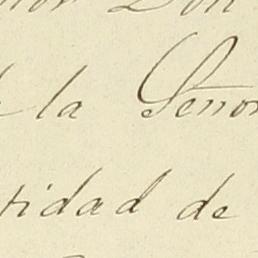 Don
la Señor
tidad de